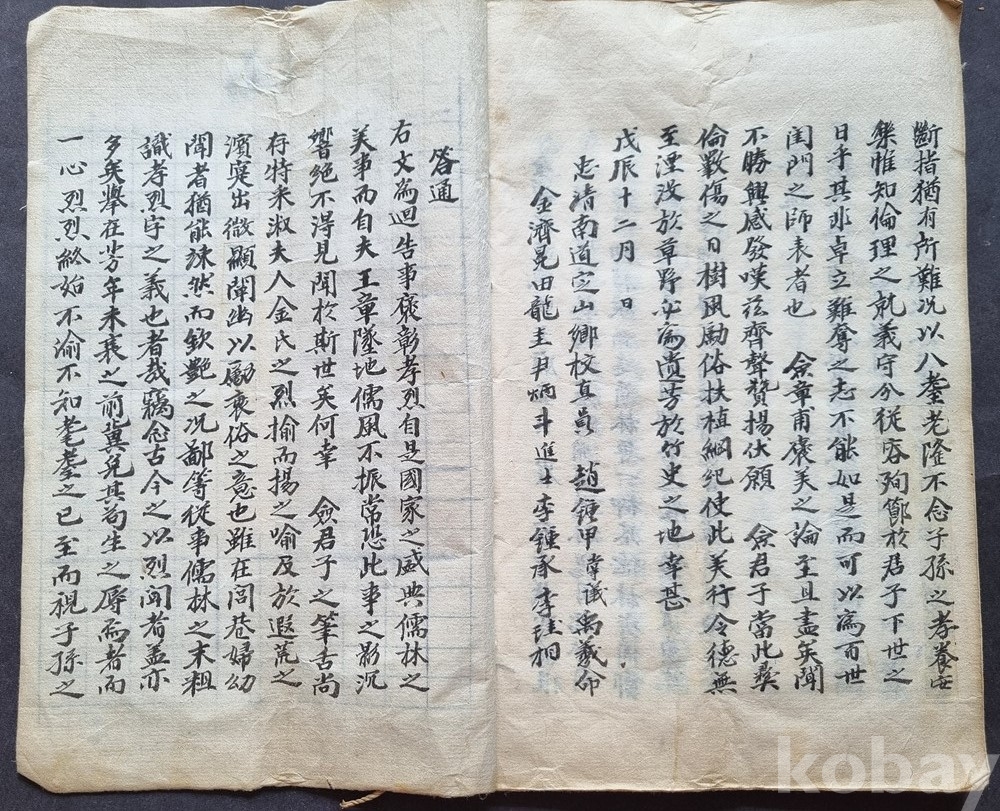 斷指猶有所難况以八耋老隆不念子孫之孝養安
樂惟知倫理之就義守分從容殉節於君子下世之
日乎其氷卓立難奪之志不能如是而可以爲百世
闺門之師表者也 僉章甫褒美之論至且盡矣聞
不勝興感發嘆玆齊聲賛揚伏願 僉君子當此彛
倫斁傷之日樹風勵俗扶植綱紀使此美行令德無
至湮没於草野必爲遗芳於竹史之地幸甚
戊辰十二月 日
忠清南道定山鄉校直員 趙鍾甲 幸議 禹羲命
金濟冕 田龍圭 尹炳斗 進士 李鍾承 李珪桐
答通
右文爲迴告事褒彰孝烈自是國家之盛典儒林之
美事而自夫 王章墜地儒風不振常恐此事之影沉
響絕不得見聞於斯世矣何幸 僉君子之筆舌尚
存特来淑夫人金氏之烈揄而揚之喻及於遐荒之
濱寔出微顯闡幽以勵衰俗之意也雖在閭巷婦幼
聞者猶能竦然而欽艷之况鄙等從事儒林之末粗
識孝烈字之義也者哉竊念古今之以烈聞者盖亦
多矣舉在芳年未衰之前冀免其苟生之辱焉者而
一心烈烈終始不渝不知耄耋之已至而視子孫之
kobay